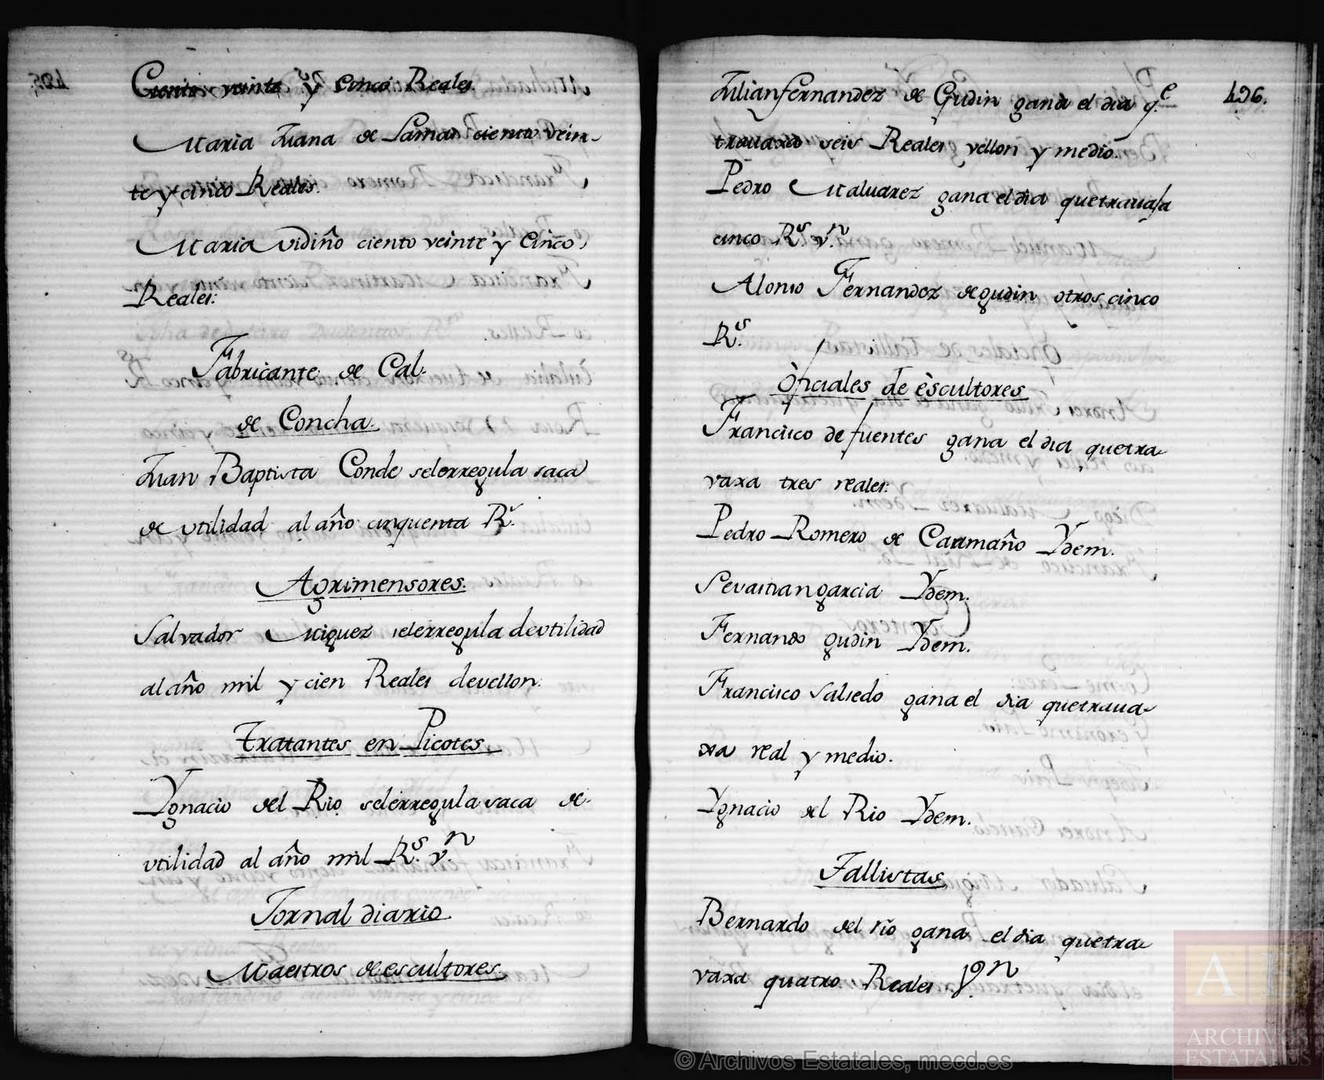 Ciento veinte Y Cinco Reales.
Maria Juana de Lamas ciento vein-
te y cinco Reales.
Maria vidiño ciento veinte y Cinco
Reales:
Fabricante de Cal
de Concha.
Juan Baptista Conde seleregula saca
de vtilidad al año cinquenta Rs.
Agrimensores.
Salvador Miguez selerregula de vtilidad
al año mil y cien Reales de vellon.
Trattantes en Picotes
Ygnacio del Rio selerregula saca de
vtilidad al año mil Rs. vn
Jornal diario
Maestros de escultores
496.
Julian fernandez de Gudin gana el dia qe
travaxo seis Reales vellon y medio.
Pedro Malvarez gana el dia que travaxa
cinco Rs vn
Alonso Fernandez de gudin otros cinco
Rs.
Oficiales de escultores
Francisco de fuentes gana el dia quetra-
vaxa tres reales:
Pedro Romero de Caamaño Ydem.
Sevastian garcia Ydem.
Fernando gudin Ydem.
Francisco Salsedo gana el dia que trava-
xa real y medio.
Ygnacio del Rio Ydem.
Tallistas
Bernardo del río gana el dia quetra-
vaxa quatro Reales vn
© Archivos Estatales, mecd.es
AE
ARCHIVOS
ESTATALES